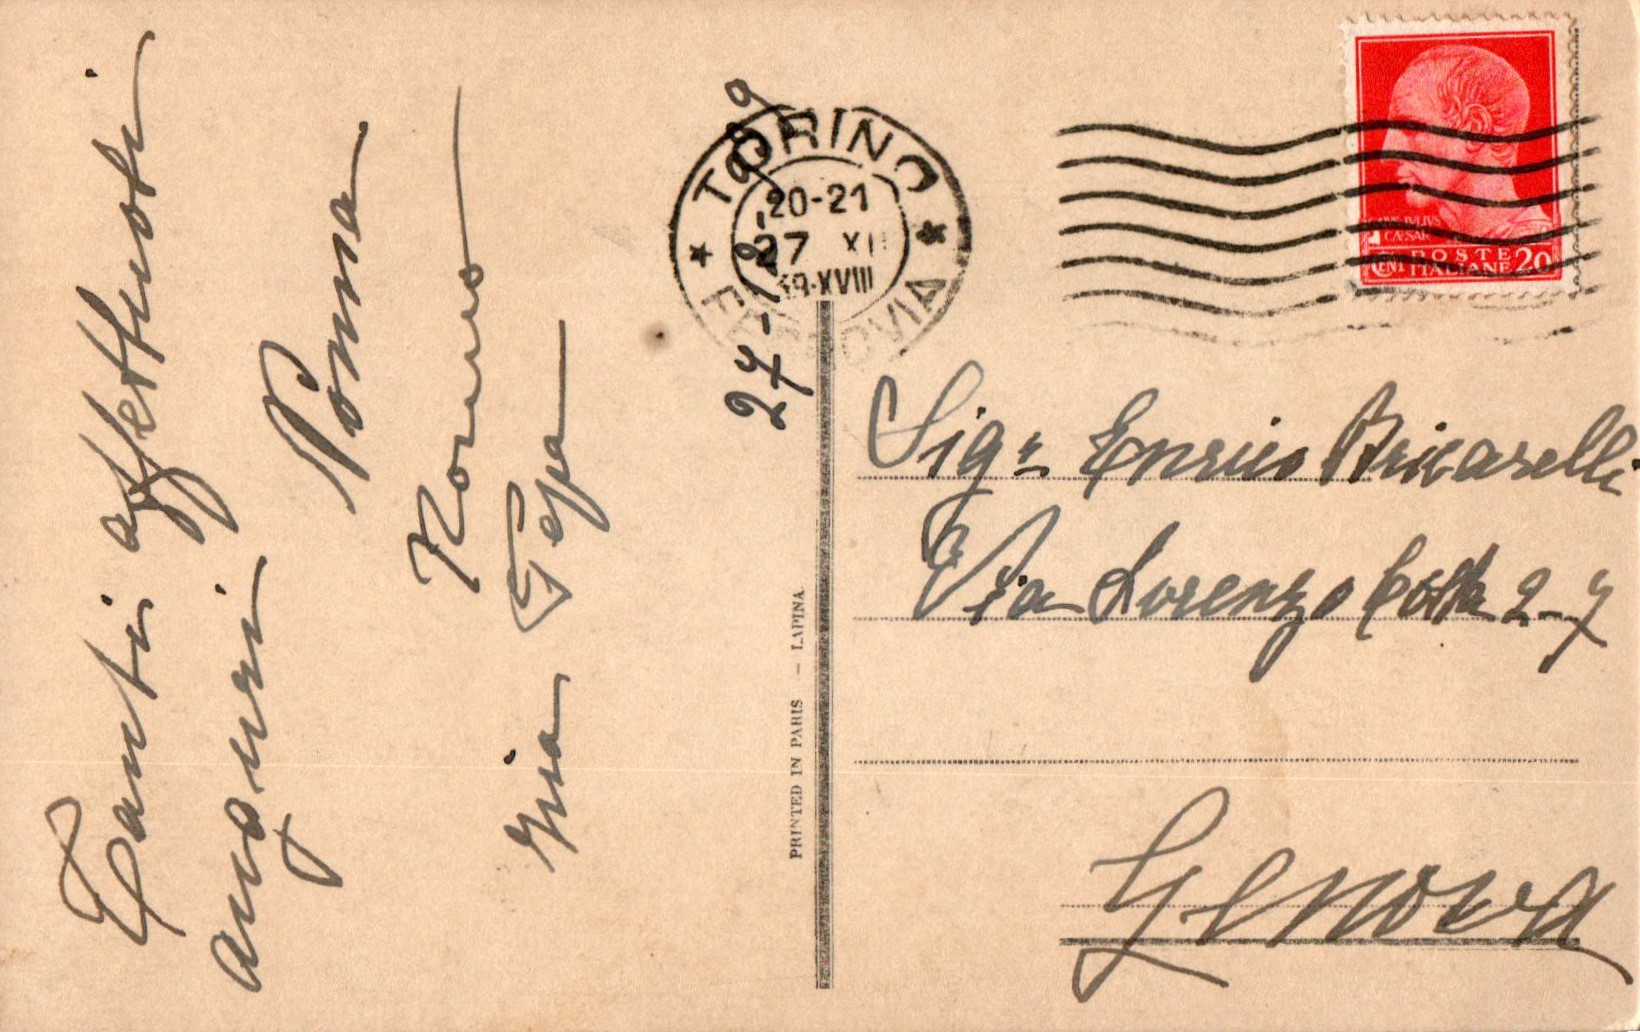 Tanti affettuosi
auguri
Nonna
Nonno
Gina Pepa
27-12-939
TORINO
20-21
27 XII
39-XVIII
FERROVIA
CAIVS IVLIVS
CÆSAR
POSTE
CENT ITALIANE 20
Sigr Enrico Bricarelli
Via Lorenzo Costa 2-7
Genova
PRINTED IN PARIS – LAPINA.